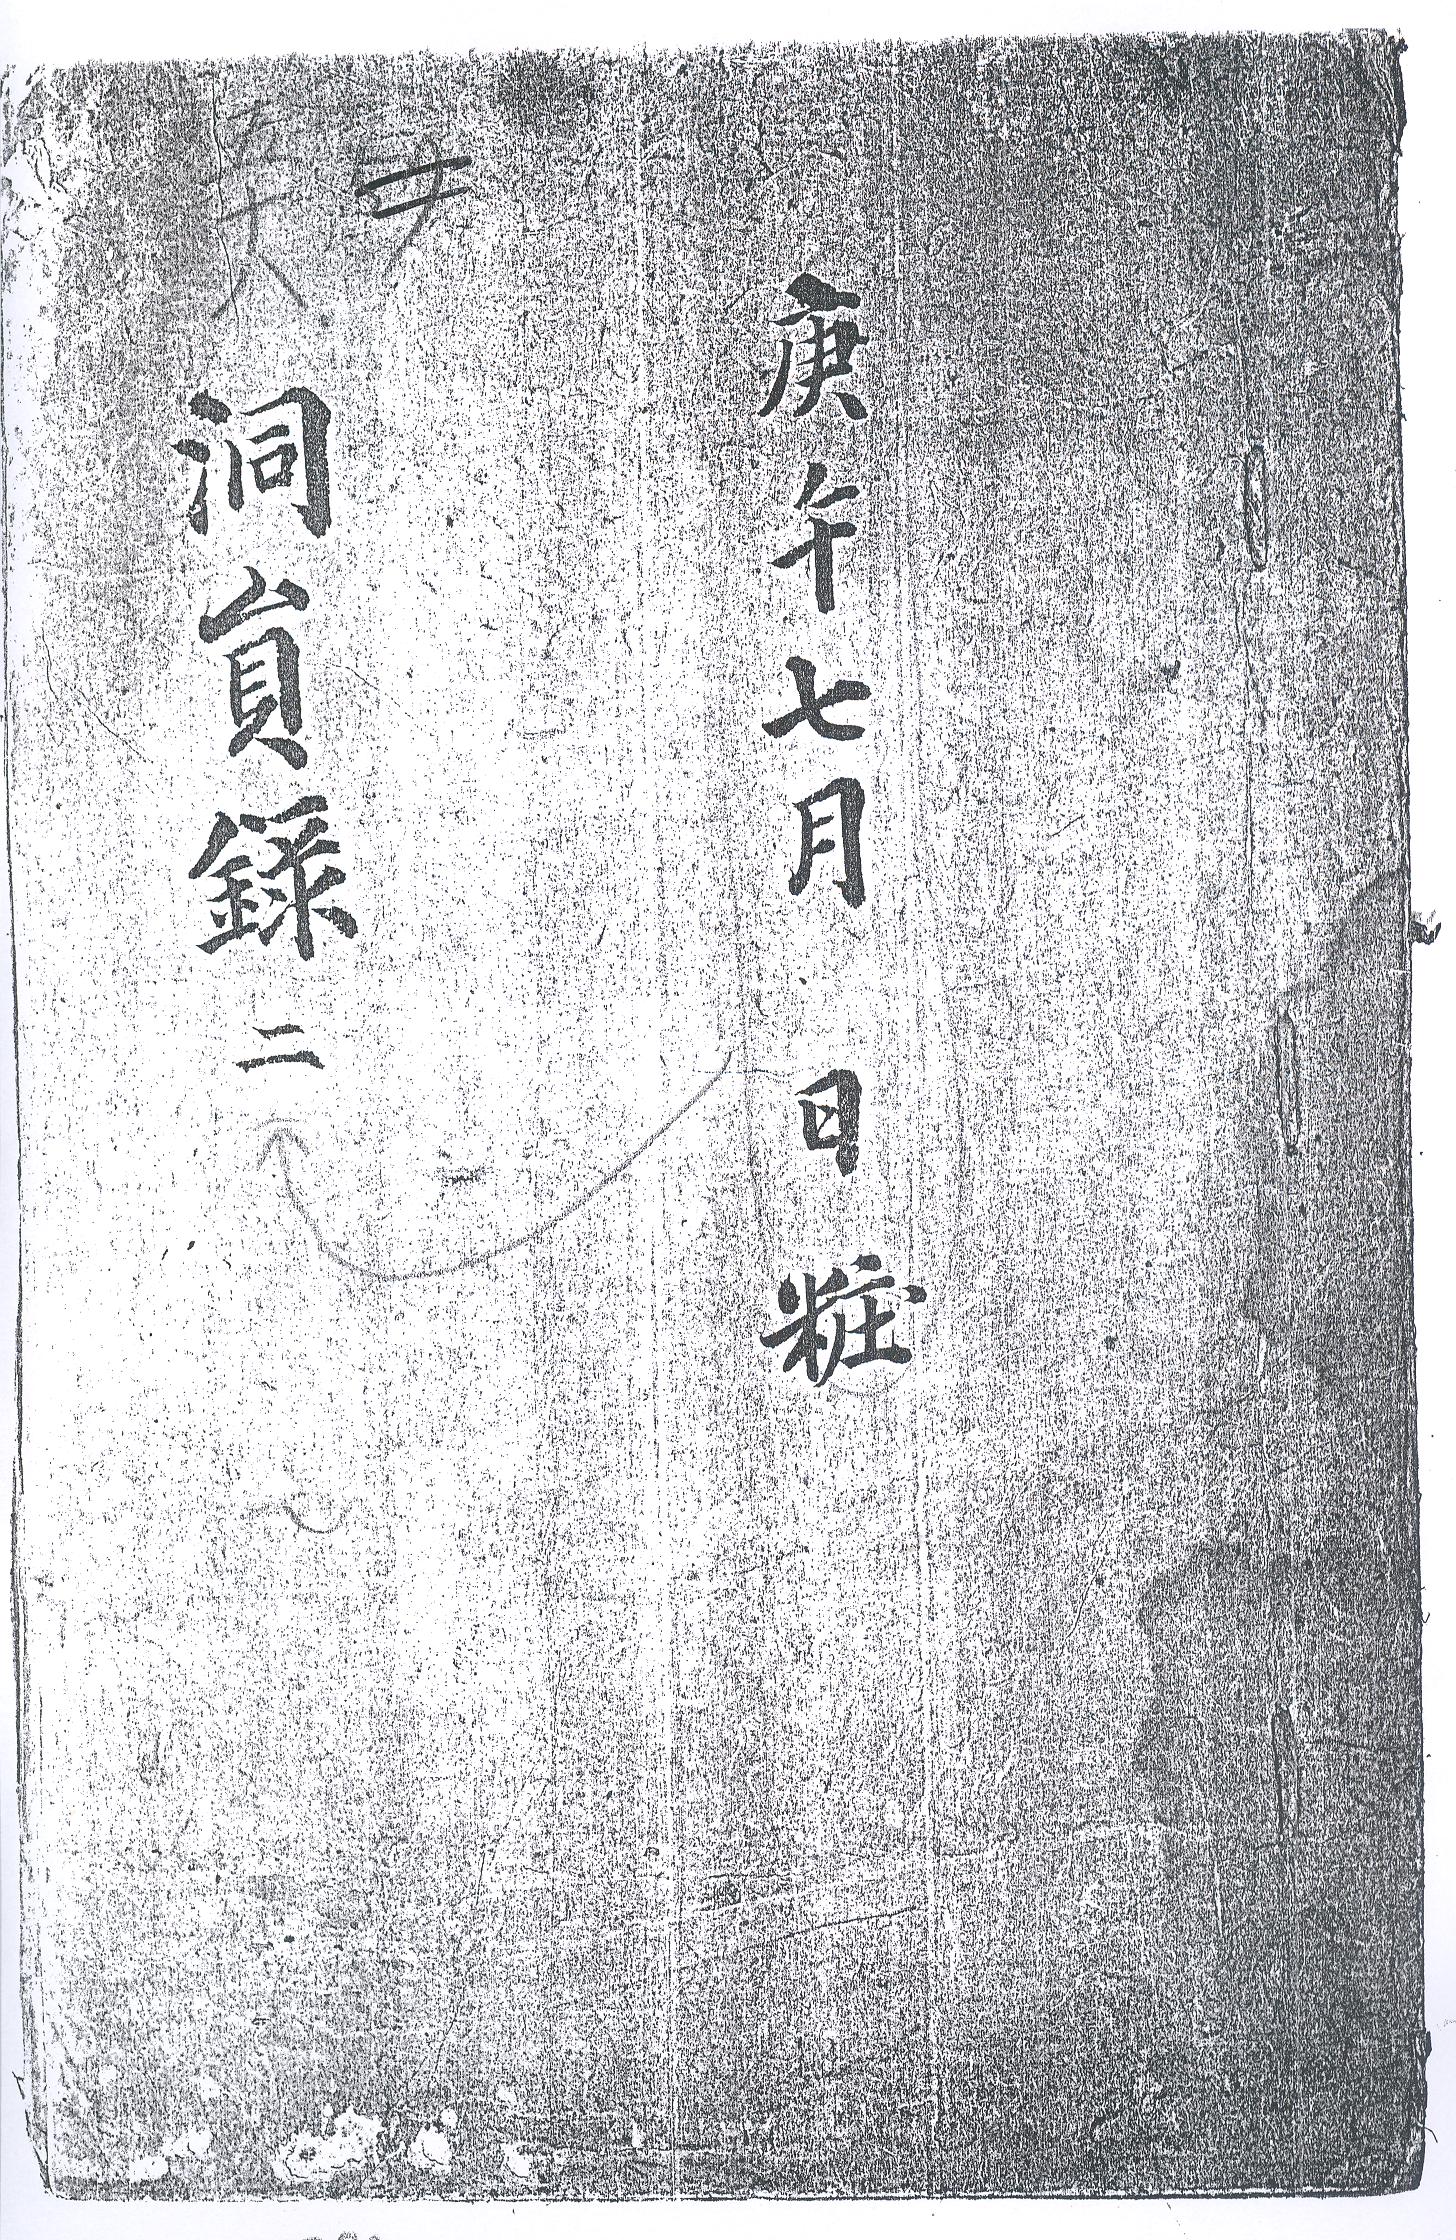 庚午七月 日粧
洞貟録 二